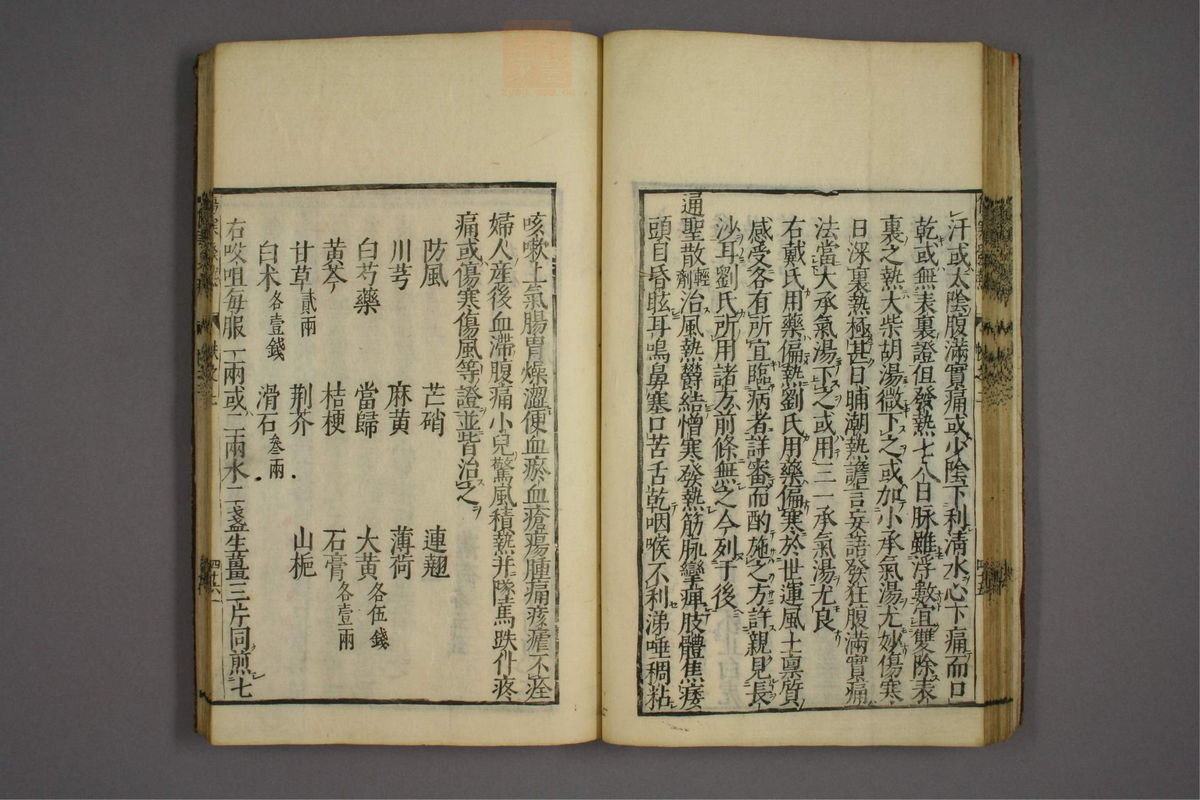 汗或太陰腹滿實痛或少陰下利清水心下痛而口
乾或無表裏證但發熱七八日脉雖浮數宜雙除表
裏之熱大柴胡湯微下之或加小承氣湯尤妙傷寒
日深裏熱極甚日晡潮熱譫言妄語發狂腹滿實痛
法當大承氣湯下之或用三一承氣湯尤良
右戴氏用藥偏熱劉氏用藥偏寒於世運風土禀質
感受各有所宜臨病者詳審而酌施之方許親見長
沙耳劉氏所用諸方前條無之今列于後
通聖散輕劑治風熱欝結憎寒發熱筋脉攣痺肢體焦痿
頭目昏眩耳鳴鼻塞口苦舌乾咽喉不利涕唾稠粘
咳嗽上氣腸胃燥澀便血瘀血瘡瘍腫痛痎瘧不痊
婦人産後血滯腹痛小兒驚風積熱并墜馬跌仆疼
痛或傷寒傷風等證並皆治之
防風 芒硝 連翹
川芎 麻黄 薄荷
白芍藥 當歸 大黄各伍錢
黄芩 桔梗 石膏各壹兩
甘草貳兩 荆芥 山梔
白术各壹錢 滑石叁兩
右㕮咀每服一兩或二兩水二盞生薑三片同煎七